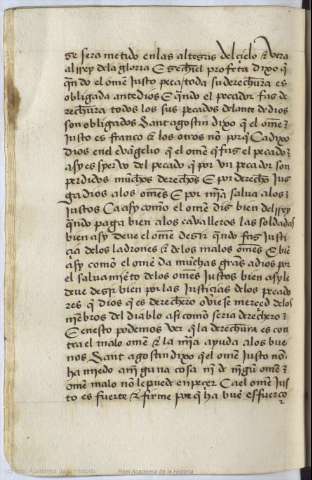 se sera metido en las alteras del cielo & vera
al rrey dela gloria E gechiel profeta dixo q̃
qñdo el om̃e justo peca toda su derechura es
obligada ante dios E qñdo el pecador faz de
rechura todos los sus pecados delante de dios
son obligados Sant agostin dixo q̃ el om̃e
justo es franco & los otros no por q̃ Ca dixo
dios en el evãgelio q̃ el om̃e q̃ faz el pecado
asy es syervo del pecado q̃ por vn pecador son
perdidos muchos derechos E por derecho jus
ga dios alos om̃es E por mĩa salva alos
justos Ca asy como el om̃e dis bien del rrey
qñdo paga bien alos cavalleros las soldadas
bien asy deve el om̃e desir qñdo faz justi
çia delos ladrones & delos malos om̃es E biẽ
asy como el om̃e da muchas grãs a dios por
el salvamiẽto delos om̃es justos bien asy le
deve desir bien por las justiçias delos pecado
res q̃ dios q̃ es derechero oviese merced delos
miẽbros del diablo asi como seria derechero
E en esto podemos ver q̃ la derechura es con
tra el mal om̃e & la mĩa ayuda alos bue
nos Sant agostin dixo q̃ el om̃e justo nõ
ha miedo a nĩguna cosa nĩ de nĩgũ om̃e
om̃e malo nõ le puede enpeçer Ca el om̃e jus
to es fuerte & firme por q̃ ha buẽ esfuerço
Real Academia de la Historia